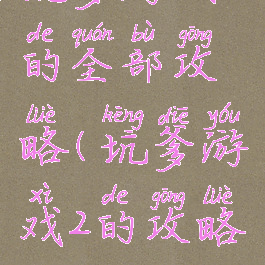 de quán bù gōng
的全部攻
lüè kēng diē yóu
略(坑爹游
xì de gōng lüè
戏2的攻略